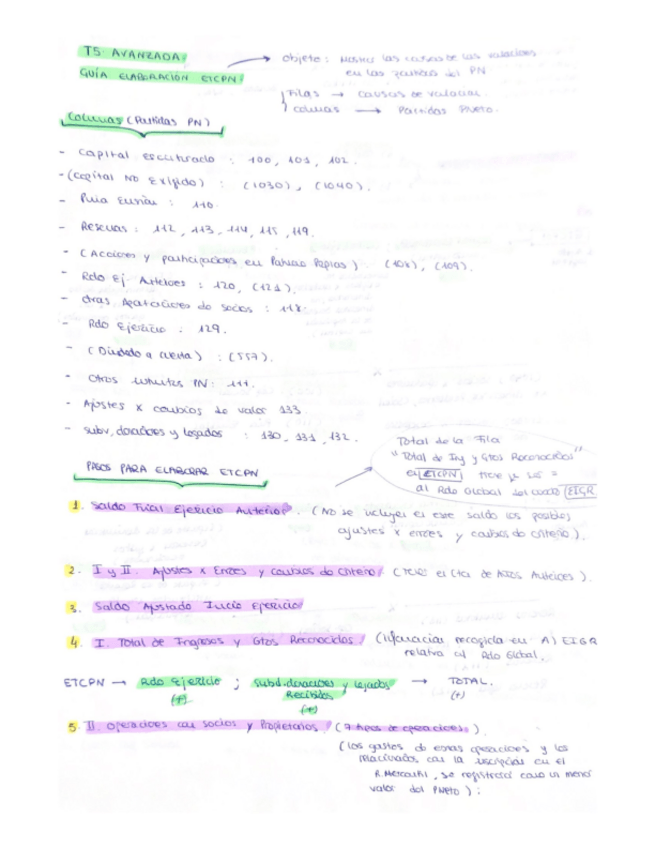 T5. AVANZADA
GUÍA ELABORACIÓN ETCPN → objeto: Mostrar las causas de las variaciones
en las partidas del PN
Filas → causas de variación.
columnas → Partidas PNeto.
Columnas (Partidas PN)
- Capital escriturado : 100, 101, 102.
- (Capital No Exigido) : (1030), (1040).
- Prima Emisión : 110.
- Reservas : 112, 113, 114, 115, 119.
- (Acciones y participaciones en Patrimonio Propias) : (108), (109).
- Rdo Ej. Anteriores : 120, (121).
- otras Aportaciones de socios : 118.
- Rdo Ejercicio : 129.
- (Dividendo a cuenta) : (557).
- otros Instrumentos PN : 111.
- Ajustes x cambios de valor 133.
- Subv, donaciones y legados : 130, 131, 132.
Total de la Fila
"Total de Ing y Gtos Reconocidos"
en ETCPN, tiene q ser =
al Rdo Global del cuadro EIGR
PASOS PARA ELABORAR ETCPN
1. Saldo Final Ejercicio Anterior. (No se incluyen en este saldo los posibles
ajustes x errores y cambios de criterio).
2. I y II. Ajustes x Errores y cambios de Criterio (
3. Saldo Ajustado Inicio Ejercicio
4. I. Total de Ingresos y Gtos Reconocidos. (Información recogida en A) EIGR
relativa al Rdo Global.
ETCPN → Rdo Ejercicio ; Subv. donaciones y legados → TOTAL.
Recibidos
(+) (+) (+)
5. II. Operaciones con Socios y Propietarios (7 tipos de operaciones).
(Los gastos de estas operaciones y los
relacionados con la inscripción en el
R. Mercantil, se registrarán como un menor
valor del PNeto) :